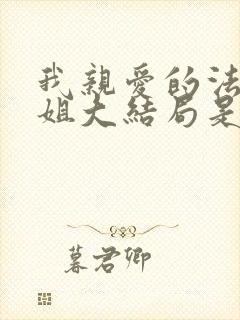 我親愛的法
姐大結局是
暮君卿